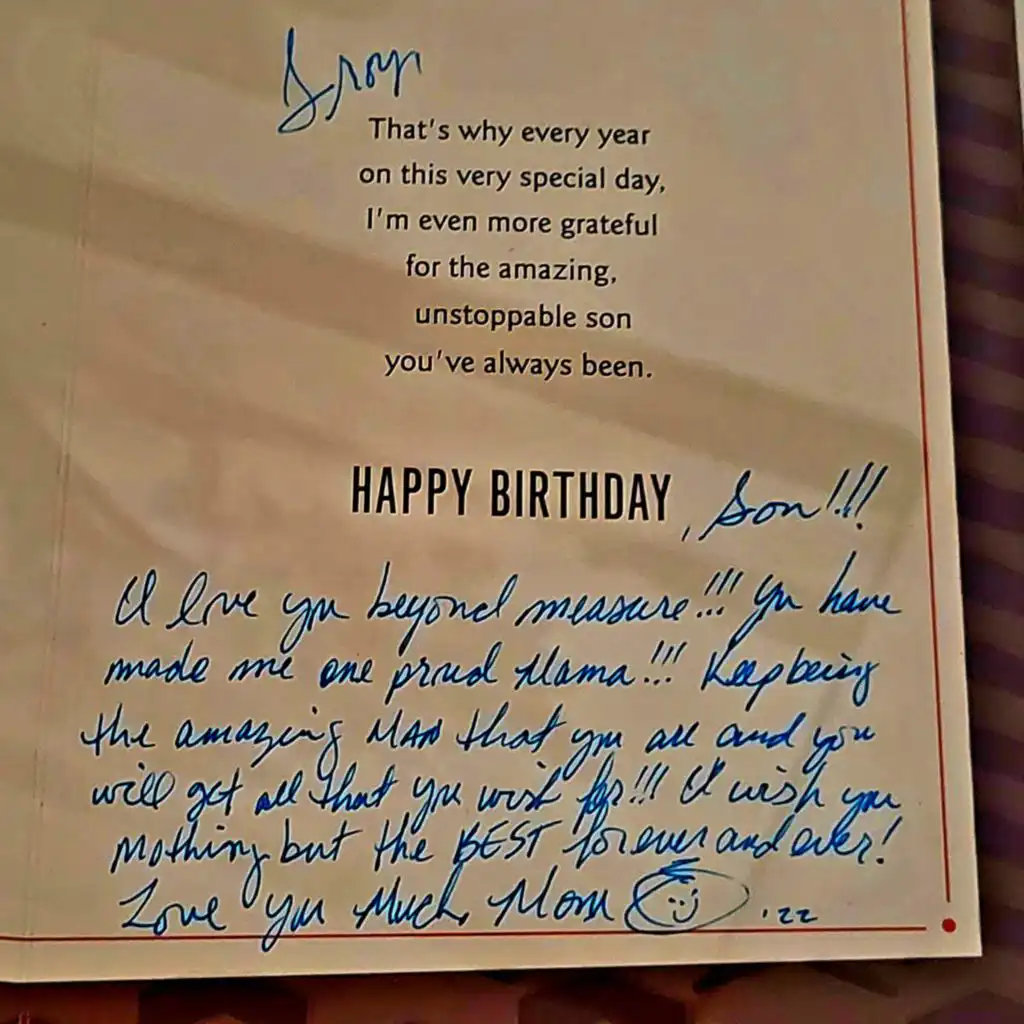 That's why every year
on this very special day,
I'm even more grateful
for the amazing,
unstoppable son
you've always been.
HAPPY BIRTHDAY, Son!!!
I love you beyond measure!!! You have
made me one proud Mama!!! Keep being
the amazing MAN that you are and you
will get all that you wish for!!! I wish you
nothing but the BEST forever and ever!
Love you Much, Mom '22